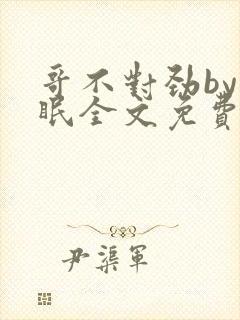 哥不對勁by
眠全文免費
尹渠軍